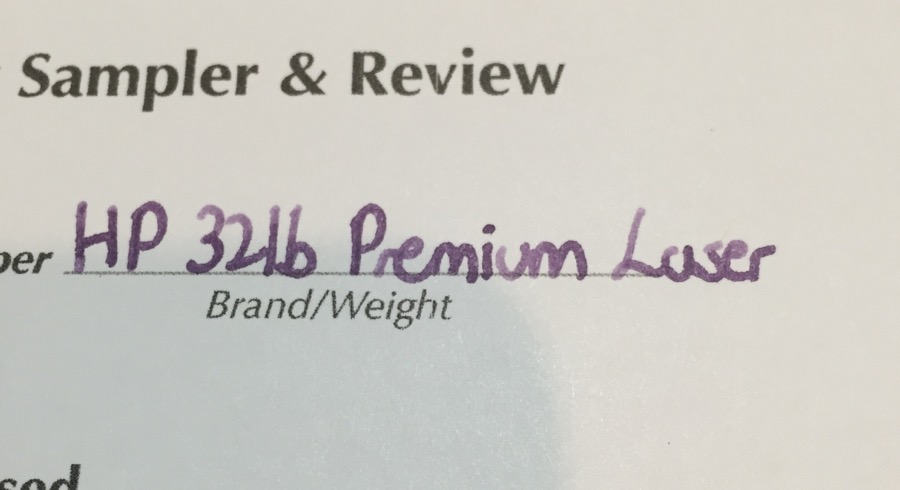 Sampler & Review
per HP 32lb Premium Laser
Brand/Weight
sed